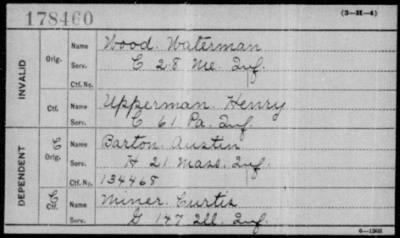 178460
(3—H—4)
INVALID
Orig. Name Wood. Waterman
Serv. C 28 Me. Inf.
Ctf. No.
Ctf. Name Upperman. Henry
Serv. C 61 Pa. Inf.
DEPENDENT
C Orig. Name Barton. Austin
Serv. H 21 Mass. Inf.
Ctf. No. 134468
C Ctf. Name Miner. Curtis
Serv. G 147 Ill. Inf.